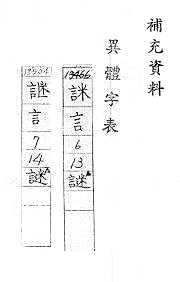 補充資料
異體字表
詸
言
6
13
謎
謎
言
7
14
謎